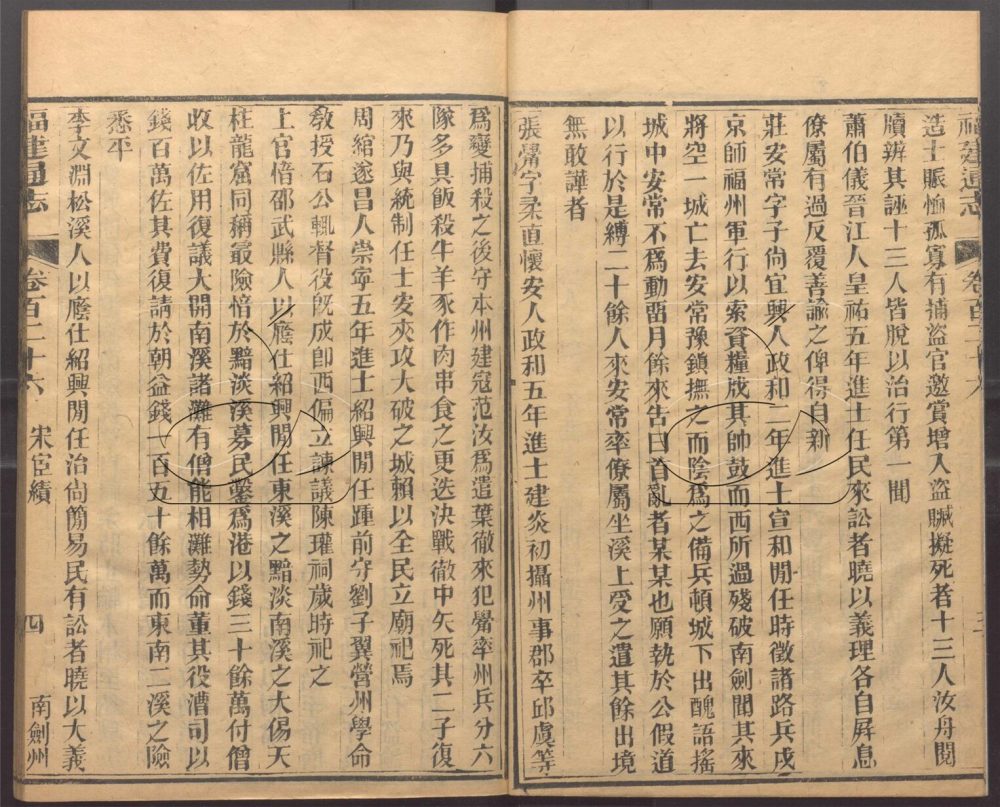 福建通志 卷百二十六 三
造士賑恤孤寡有捕盜官邀賞增入盜贓擬死者十三人汝舟閱
牘辨其誣十三人皆脫以治行第一聞
蕭伯儀晉江人皇祐五年進士任民來訟者曉以義理各自屏息
僚屬有過反覆善諭之俾得自新
莊安常字子尙宜興人政和二年進士宣和閒任時徵諸路兵戍
京師福州軍行以索資糧戍其帥鼓而西所過殘破南劍聞其來
將空一城亡去安常豫鎮撫之而陰爲之備兵頓城下出醜語搖
城中安常不爲動畱月餘來告曰首亂者某某也願執於公假道
以行於是縛二十餘人來安常率僚屬坐溪上受之遣其餘出境
無敢譁者
張觷字柔直懷安人政和五年進士建炎初攝州事郡卒邱虞等
爲變捕殺之後守本州建寇范汝爲遣葉徹來犯觷率州兵分六
隊多具飯殺牛羊豕作肉串食之更迭決戰徹中矢死其二子復
來乃與統制任士安夾攻大破之城賴以全民立廟祀焉
周綰遂昌人崇寧五年進士紹興閒任踵前守劉子翼營州學命
敎授石公輒督役旣成卽西偏立諫議陳瓘祠歲時祀之
上官愔邵武縣人以廕仕紹興閒任東溪之黯淡南溪之大傷天
柱龍窟同稱最險愔於黯淡溪募民鑿爲港以錢三十餘萬付僧
收以佐用復議大開南溪諸灘有僧能相灘勢命董其役漕司以
錢百萬佐其費復請於朝益錢一百五十餘萬而東南二溪之險
悉平
李文淵松溪人以廕仕紹興閒任治尙簡易民有訟者曉以大義
福建通志 卷百二十六 宋宦績 四 南劍州